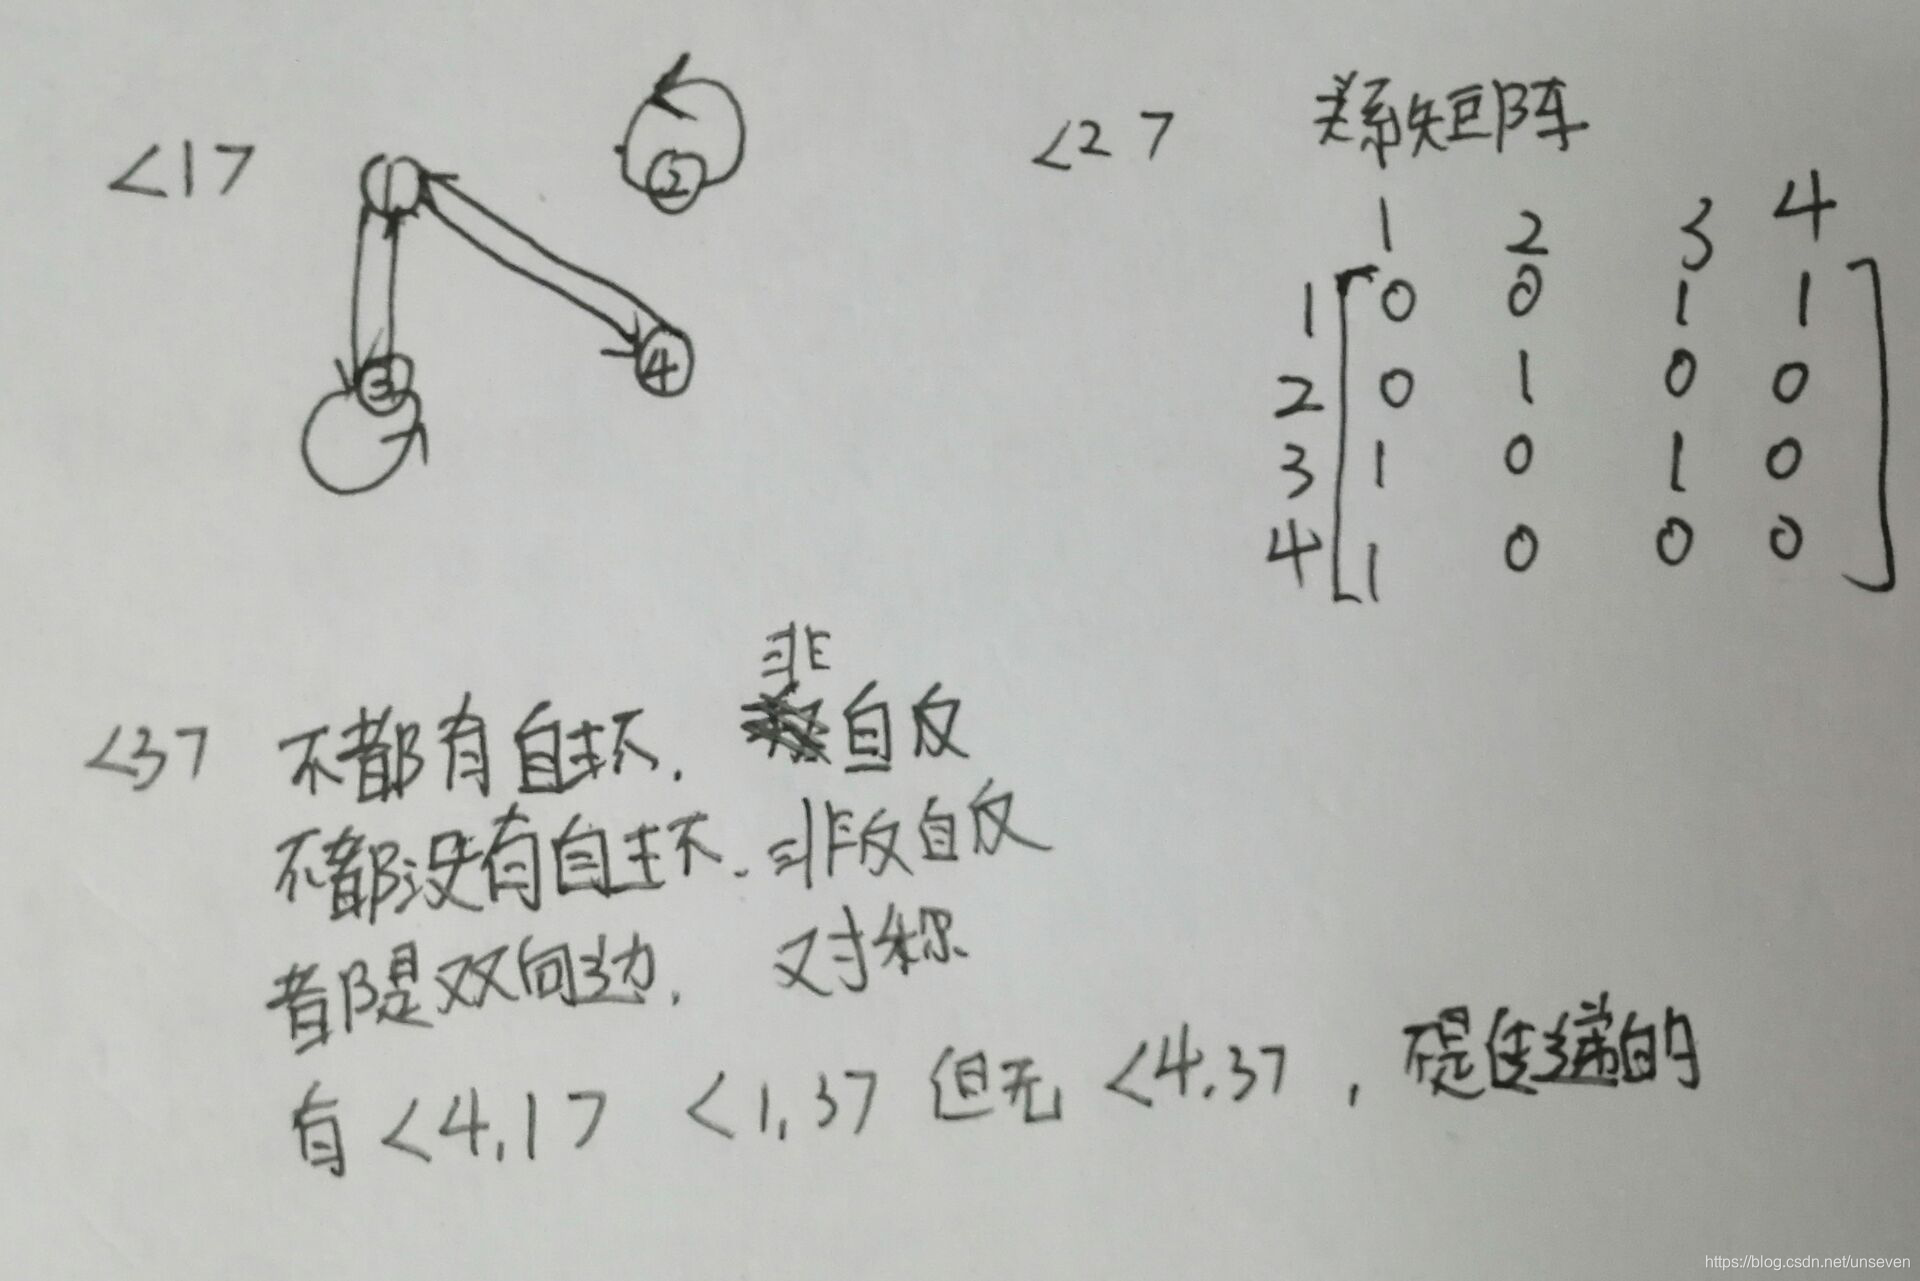 <1>
1
2
3
4
<2> 关系矩阵
1 2 3 4
1 0 0 1 1
2 0 1 0 0
3 1 0 1 0
4 1 0 0 0
<3> 不都有自环. 非自反
不都没有自环. 非反自反
都是双向边. 对称
有<4,1> <1,3> 但无<4,3>, 不是传递的
https://blog.csdn.net/unseven